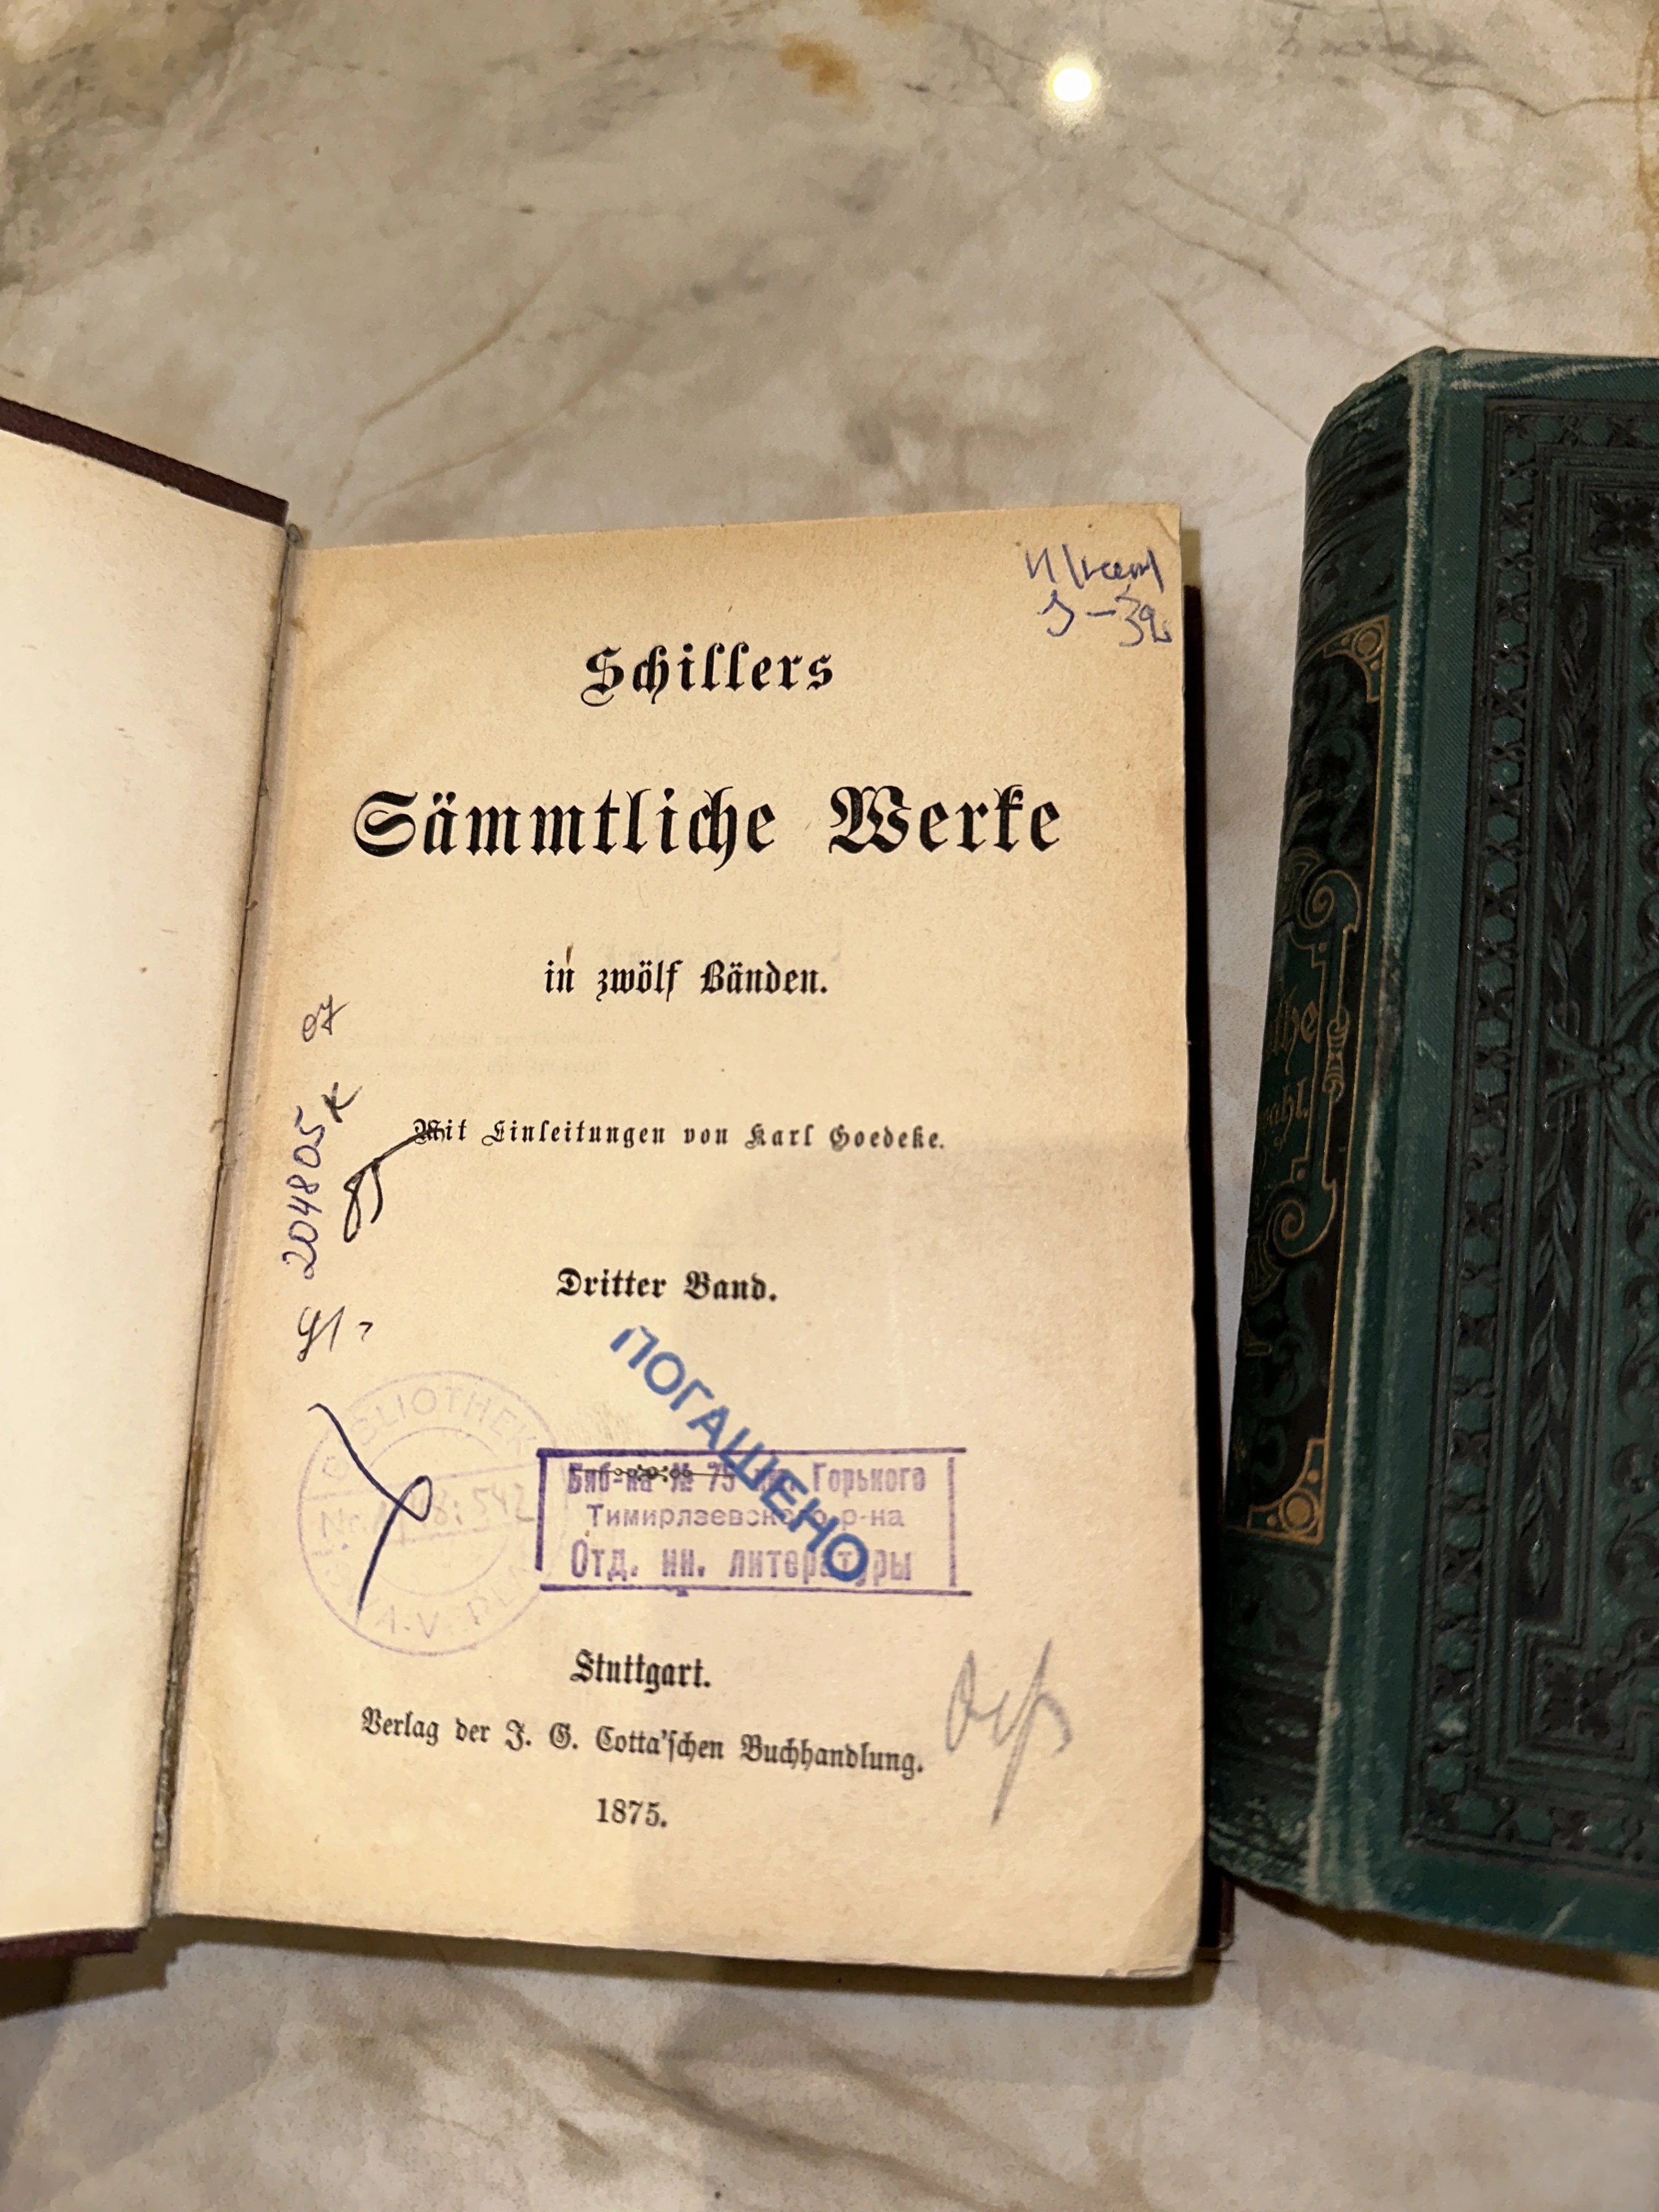 Schillers
Sämmtliche Werke
in zwölf Bänden.
Mit Einleitungen von Karl Goedeke.
Dritter Band.
07
204805
ПОГАШЕНО
BIBLIOTHEK
Nr. 542
A. V.
Биб-ка № 75 им. Горького
Тимирязевского р-на
Отд. ин. литературы
Stuttgart.
Verlag der J. G. Cotta'schen Buchhandlung.
1875.